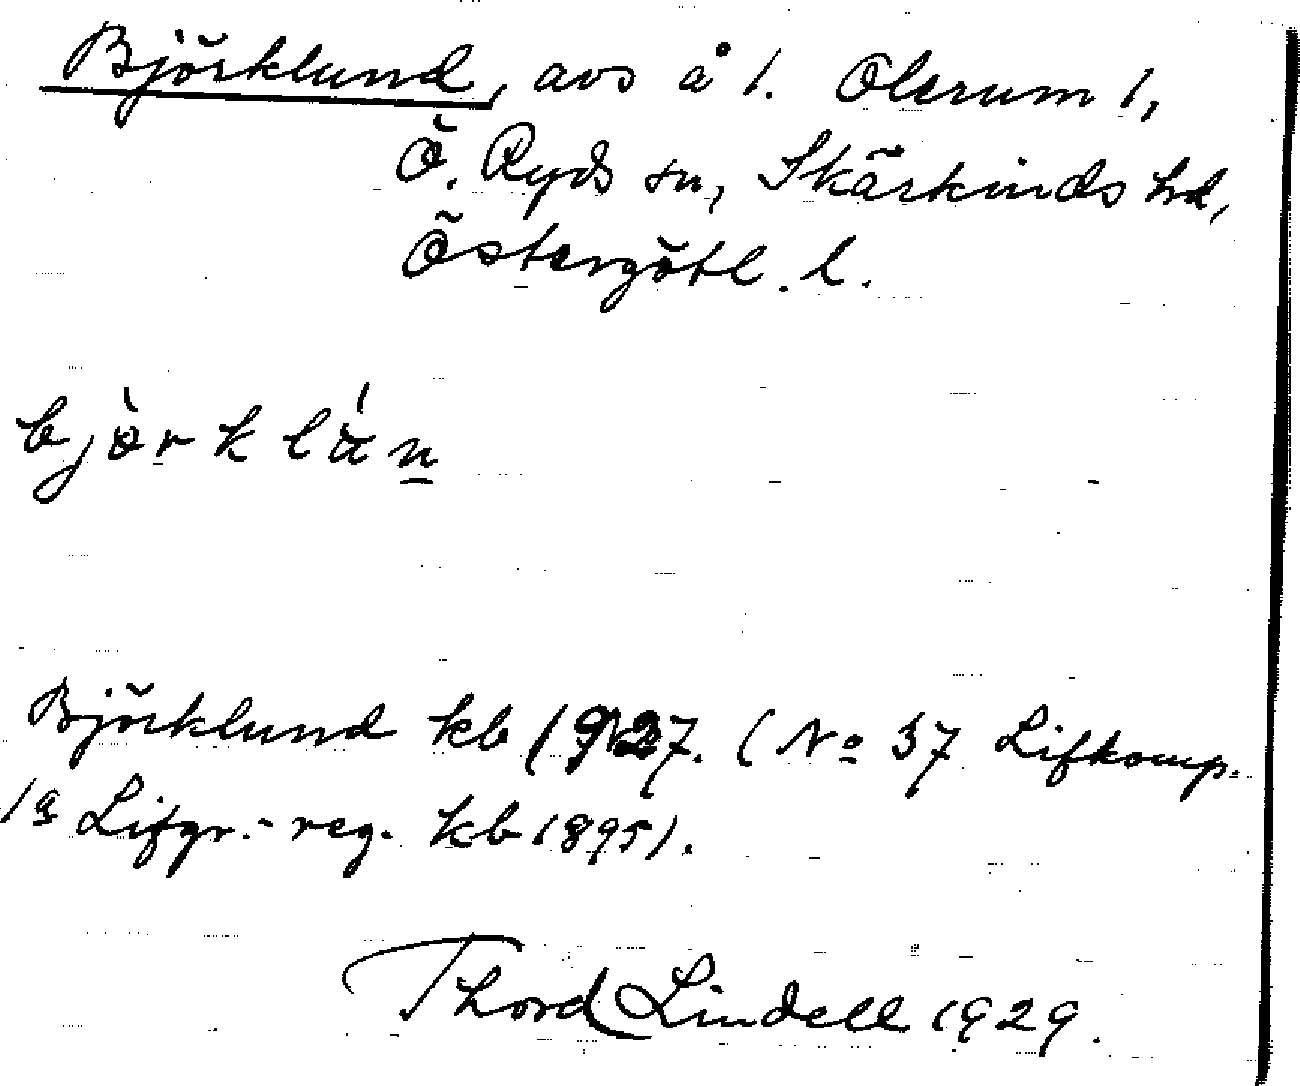 Björklund, avs å 1. Olerum 1,
Ö. Ryds sn, Skärkinds hd,
Östergötl. l.
bjò̀rklán
Björklund kb 1927. (No 37 Lifkomp.
1a Lifgr.-reg. kb 1895).
Thord Lindell 1929.